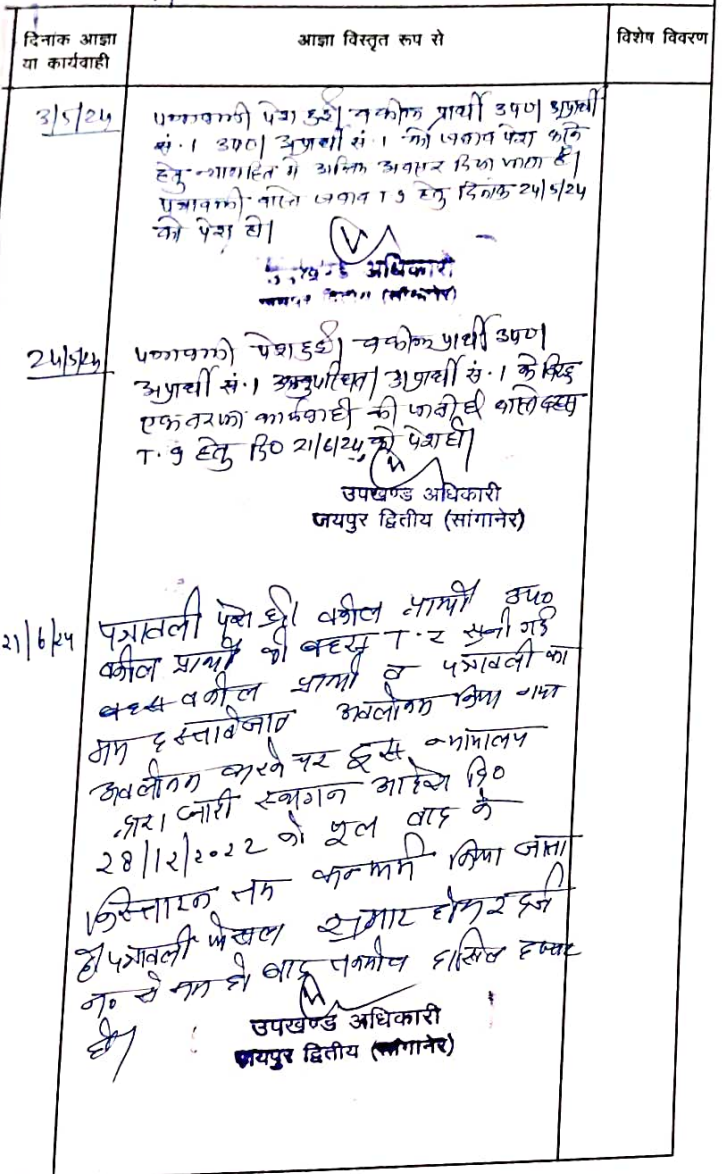 दिनांक आज्ञा
या कार्यवाही
आज्ञा विस्तृत रूप से
विशेष विवरण
3/5/24
पत्रावली पेश हुई। वकील प्रार्थी उपण अप्रार्थी
सं. 1 उपण। अप्रार्थी सं. 1 को जवाब पेश करने
हेतु न्यायहित में अन्तिम अवसर दिया जाता है।
पत्रावली वास्ते जवाब T 9 हेतु दिनांक 24/5/24
को पेश हो।
अधिकारी
(सांगानेर)
24/5/24
पत्रावली पेश हुई। वकील प्रार्थी उपण।
अप्रार्थी सं. 1 अनुपस्थित। अप्रार्थी सं. 1 के विरुद्ध
एकतरफा कार्यवाही की जाती है वास्ते बहस
T. 9 हेतु दि0 21/6/24 को पेश हो।
उपखण्ड अधिकारी
जयपुर द्वितीय (सांगानेर)
21/6/24
पत्रावली पेश हुई। वकील प्रार्थी उप०
वकील प्रार्थी की बहस T. 2 सुनी गई
बहस वकील प्रार्थी व पत्रावली का
मय दस्तावेजात अवलोकन किया गया
अवलोकन करने पर इस न्यायालय
द्वारा जारी स्थगन आदेश दि0
28/12/2022 को मूल वाद के
निस्तारन तक कन्फर्म किया जाता
है। पत्रावली फैसल शुमार होकर दर्ज
न० से कम हो बाद तकमील दाखिल दफ्तर
हो।
उपखण्ड अधिकारी
जयपुर द्वितीय (सांगानेर)